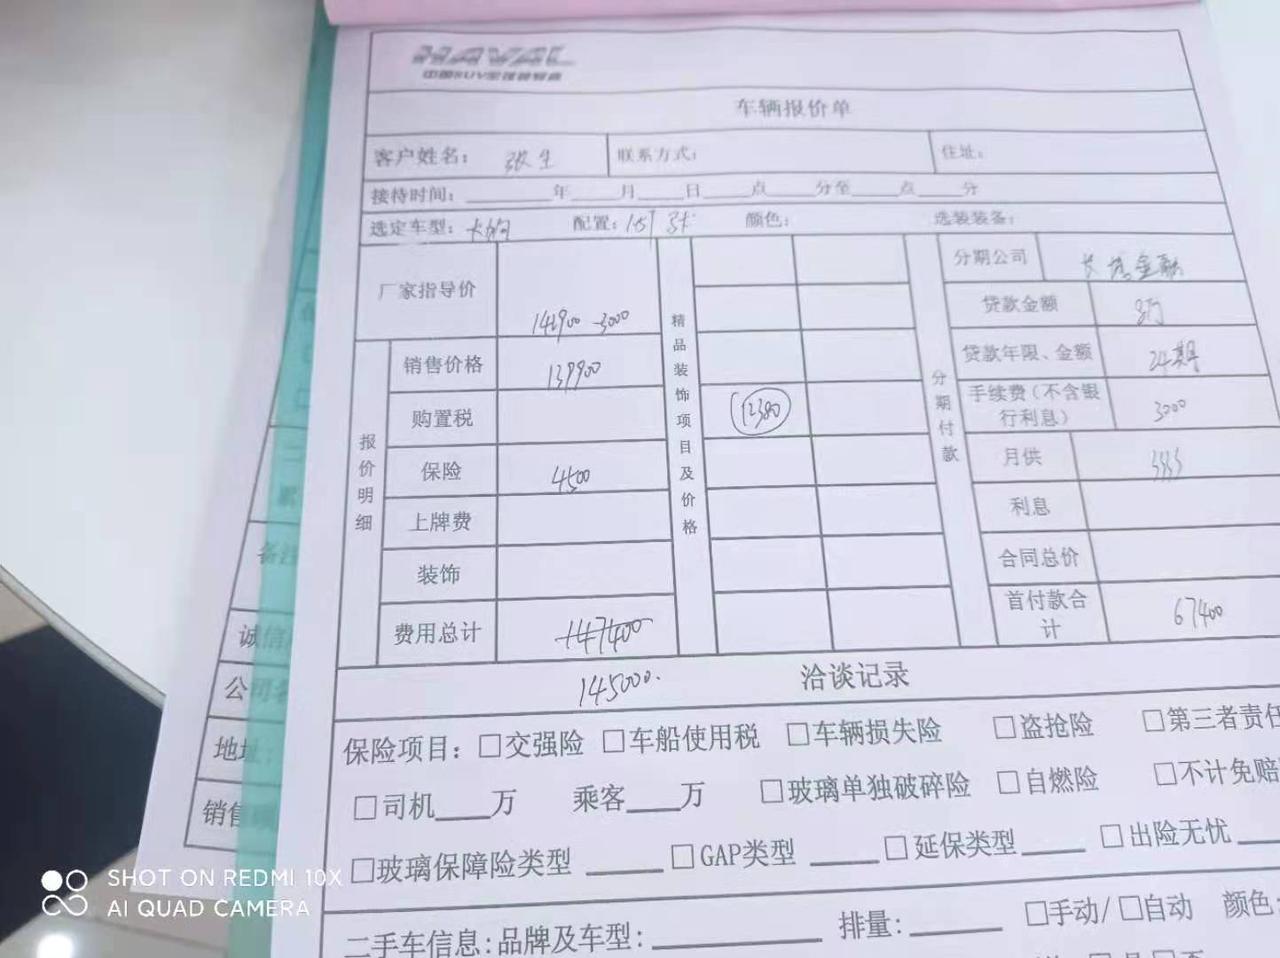 HAVAL
车辆报价单
客户姓名： 张生 联系方式： 住址：
接待时间：____年____月____日____点____分至____点____分
选定车型： 大狗 配置： 颜色： 选装装备：
厂家指导价 142900 -3000
报价明细
销售价格 139900
购置税
保险 4500
上牌费
装饰
费用总计 147400
145000.
精品装饰项目及价格
12380
分期付款
分期公司 长城金融
贷款金额 8万
贷款年限、金额 24期
手续费（不含银行利息） 3000
月供 3333
利息
合同总价
首付款合计 67400
洽谈记录
保险项目：□交强险 □车船使用税 □车辆损失险 □盗抢险 □第三者责任
□司机____万 乘客____万 □玻璃单独破碎险 □自燃险 □不计免赔
□玻璃保障险类型 ____ □GAP类型 ____ □延保类型____ □出险无忧
二手车信息：品牌及车型：________ 排量：____ □手动/□自动 颜色：
备注
诚信
公司名
地址：
销售
SHOT ON REDMI 10X
AI QUAD CAMERA